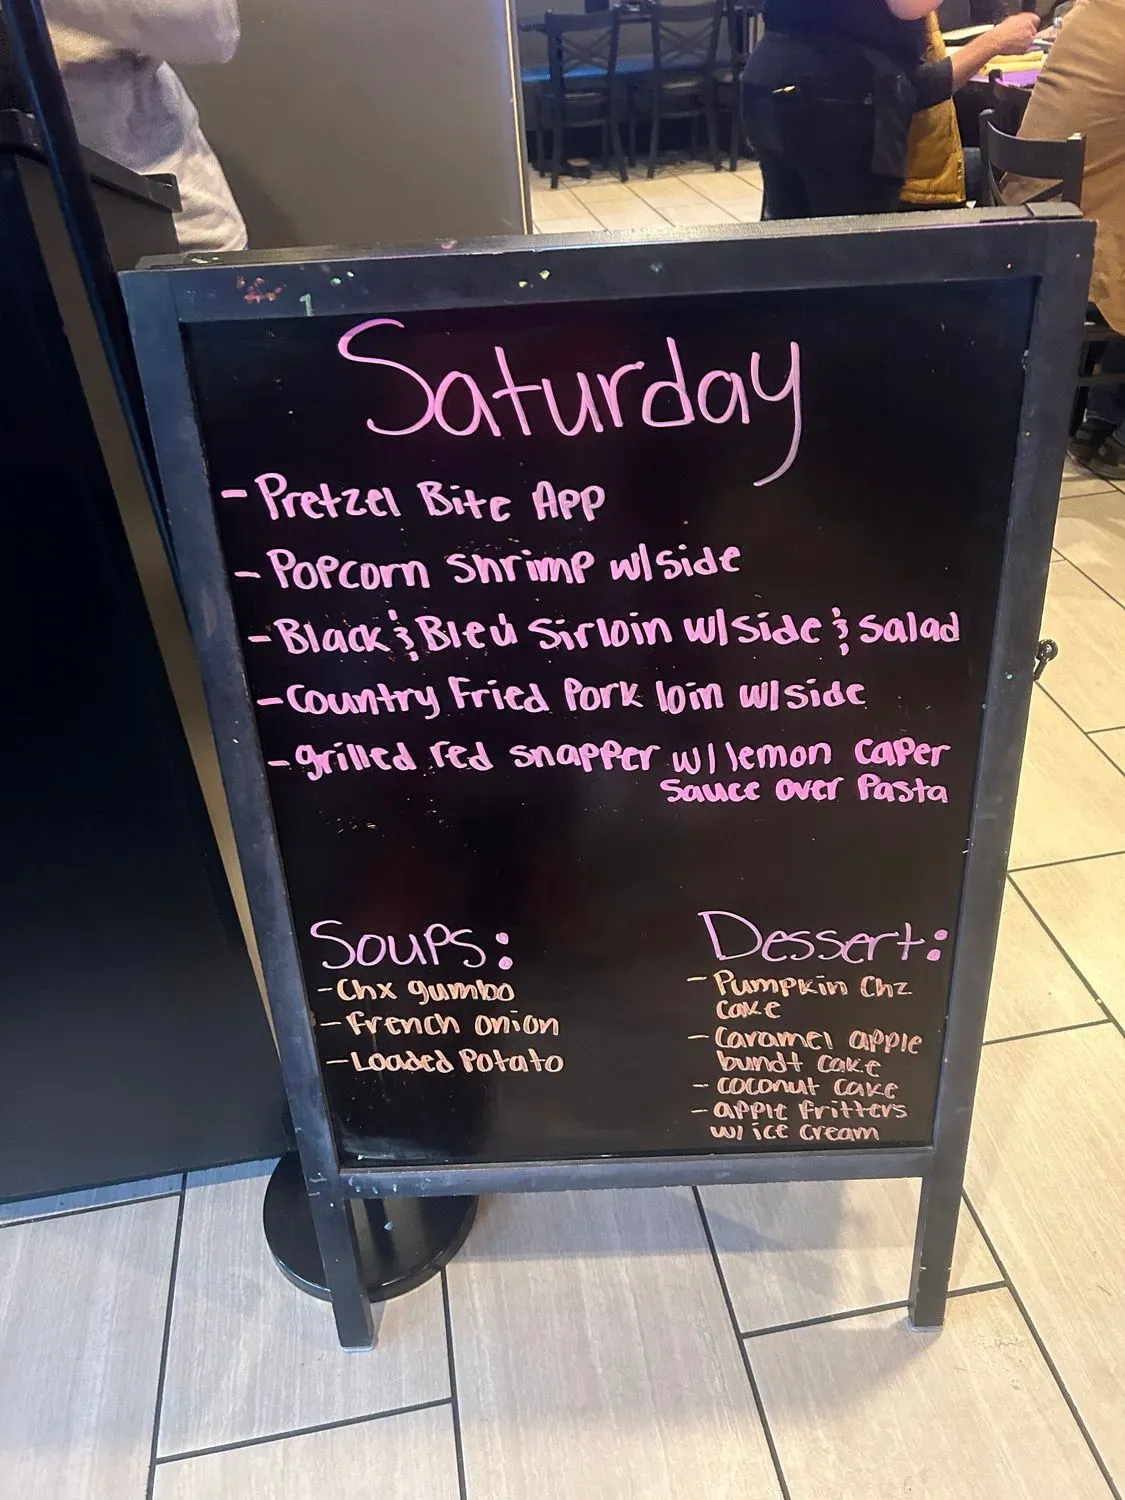 Saturday
- Pretzel Bite App
- Popcorn shrimp w/side
- Black & Bleu Sirloin w/side & salad
- Country Fried Pork loin w/side
- grilled red snapper w/ lemon caper
sauce over Pasta
Soups:
- Chx gumbo
- French onion
- Loaded Potato
Dessert:
- Pumpkin Chz
cake
- Caramel apple
bundt cake
- coconut cake
- apple fritters
w/ ice cream